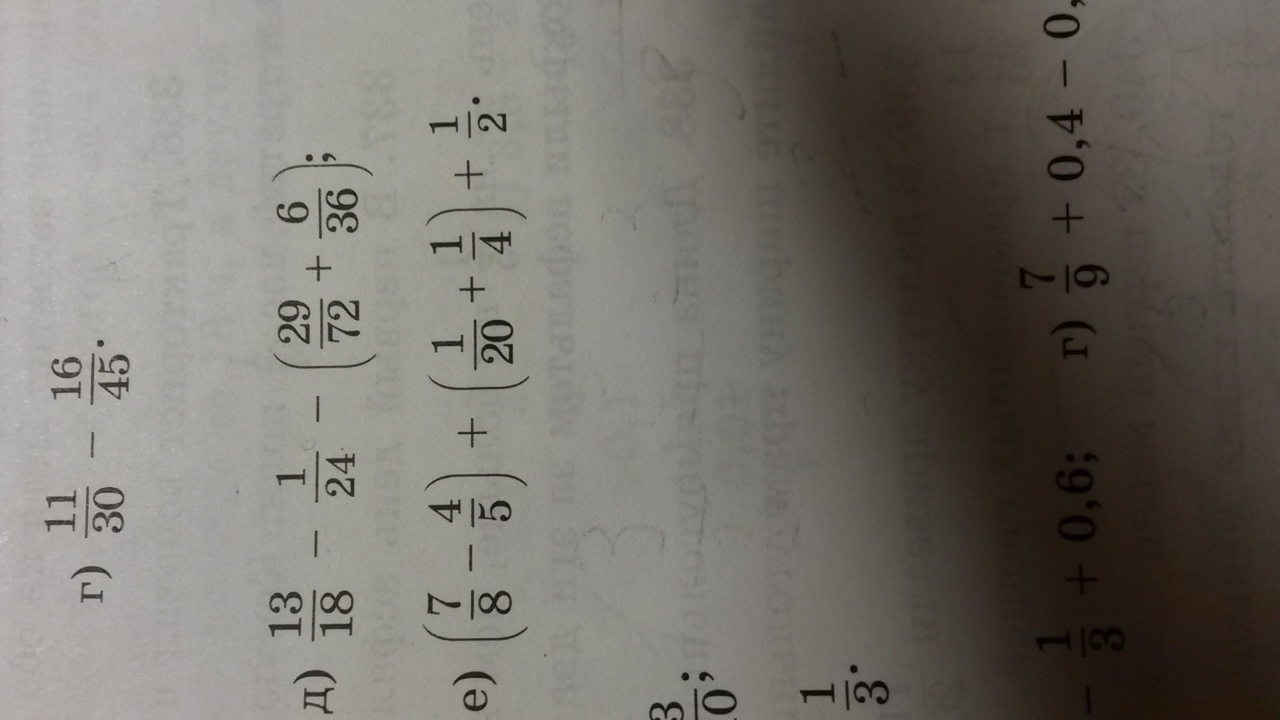 г) 11/30 − 16/45.
д) 13/18 − 1/24 − (29/72 + 6/36);
е) (7/8 − 4/5) + (1/20 + 1/4) + 1/2.
3/10;
1/3.
− 1/3 + 0,6; г) 7/9 + 0,4 − 0,